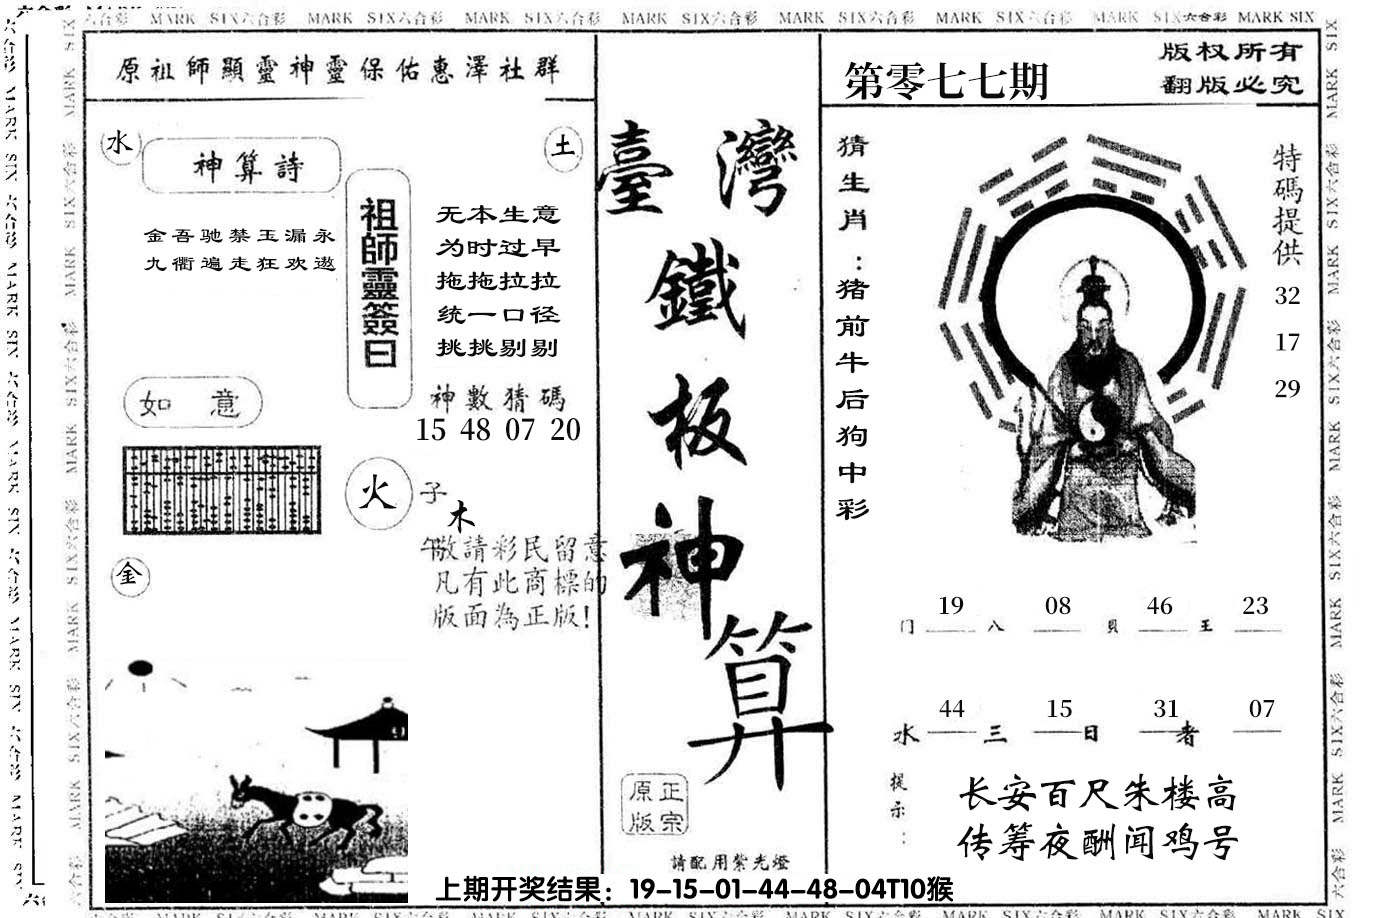 MARK SIX六合彩 MARK SIX六合彩 MARK SIX六合彩 MARK SIX六合彩 MARK SIX六合彩 MARK SIX六合彩 MARK SIX六合彩 MARK SIX
原祖師顯靈神靈保佑惠澤社群
水
土
神算詩
金吾驰禁玉漏永
九衢遍走狂欢遨
祖師靈簽曰
无本生意
为时过早
拖拖拉拉
统一口径
挑挑剔剔
神數猜碼
15 48 07 20
如意
火
子
木
午
敬請彩民留意
凡有此商標的
版面為正版!
金
臺灣
鐵
板
神
算
正宗
原版
請配用紫光燈
第零七七期
版权所有
翻版必究
猜生肖:猪前牛后狗中彩
特碼提供
32
17
29
19 08 46 23
门 八 貝 王
44 15 31 07
水 三 日 者
提示:
长安百尺朱楼高
传筹夜酬闻鸡号
上期开奖结果：19-15-01-44-48-04T10猴